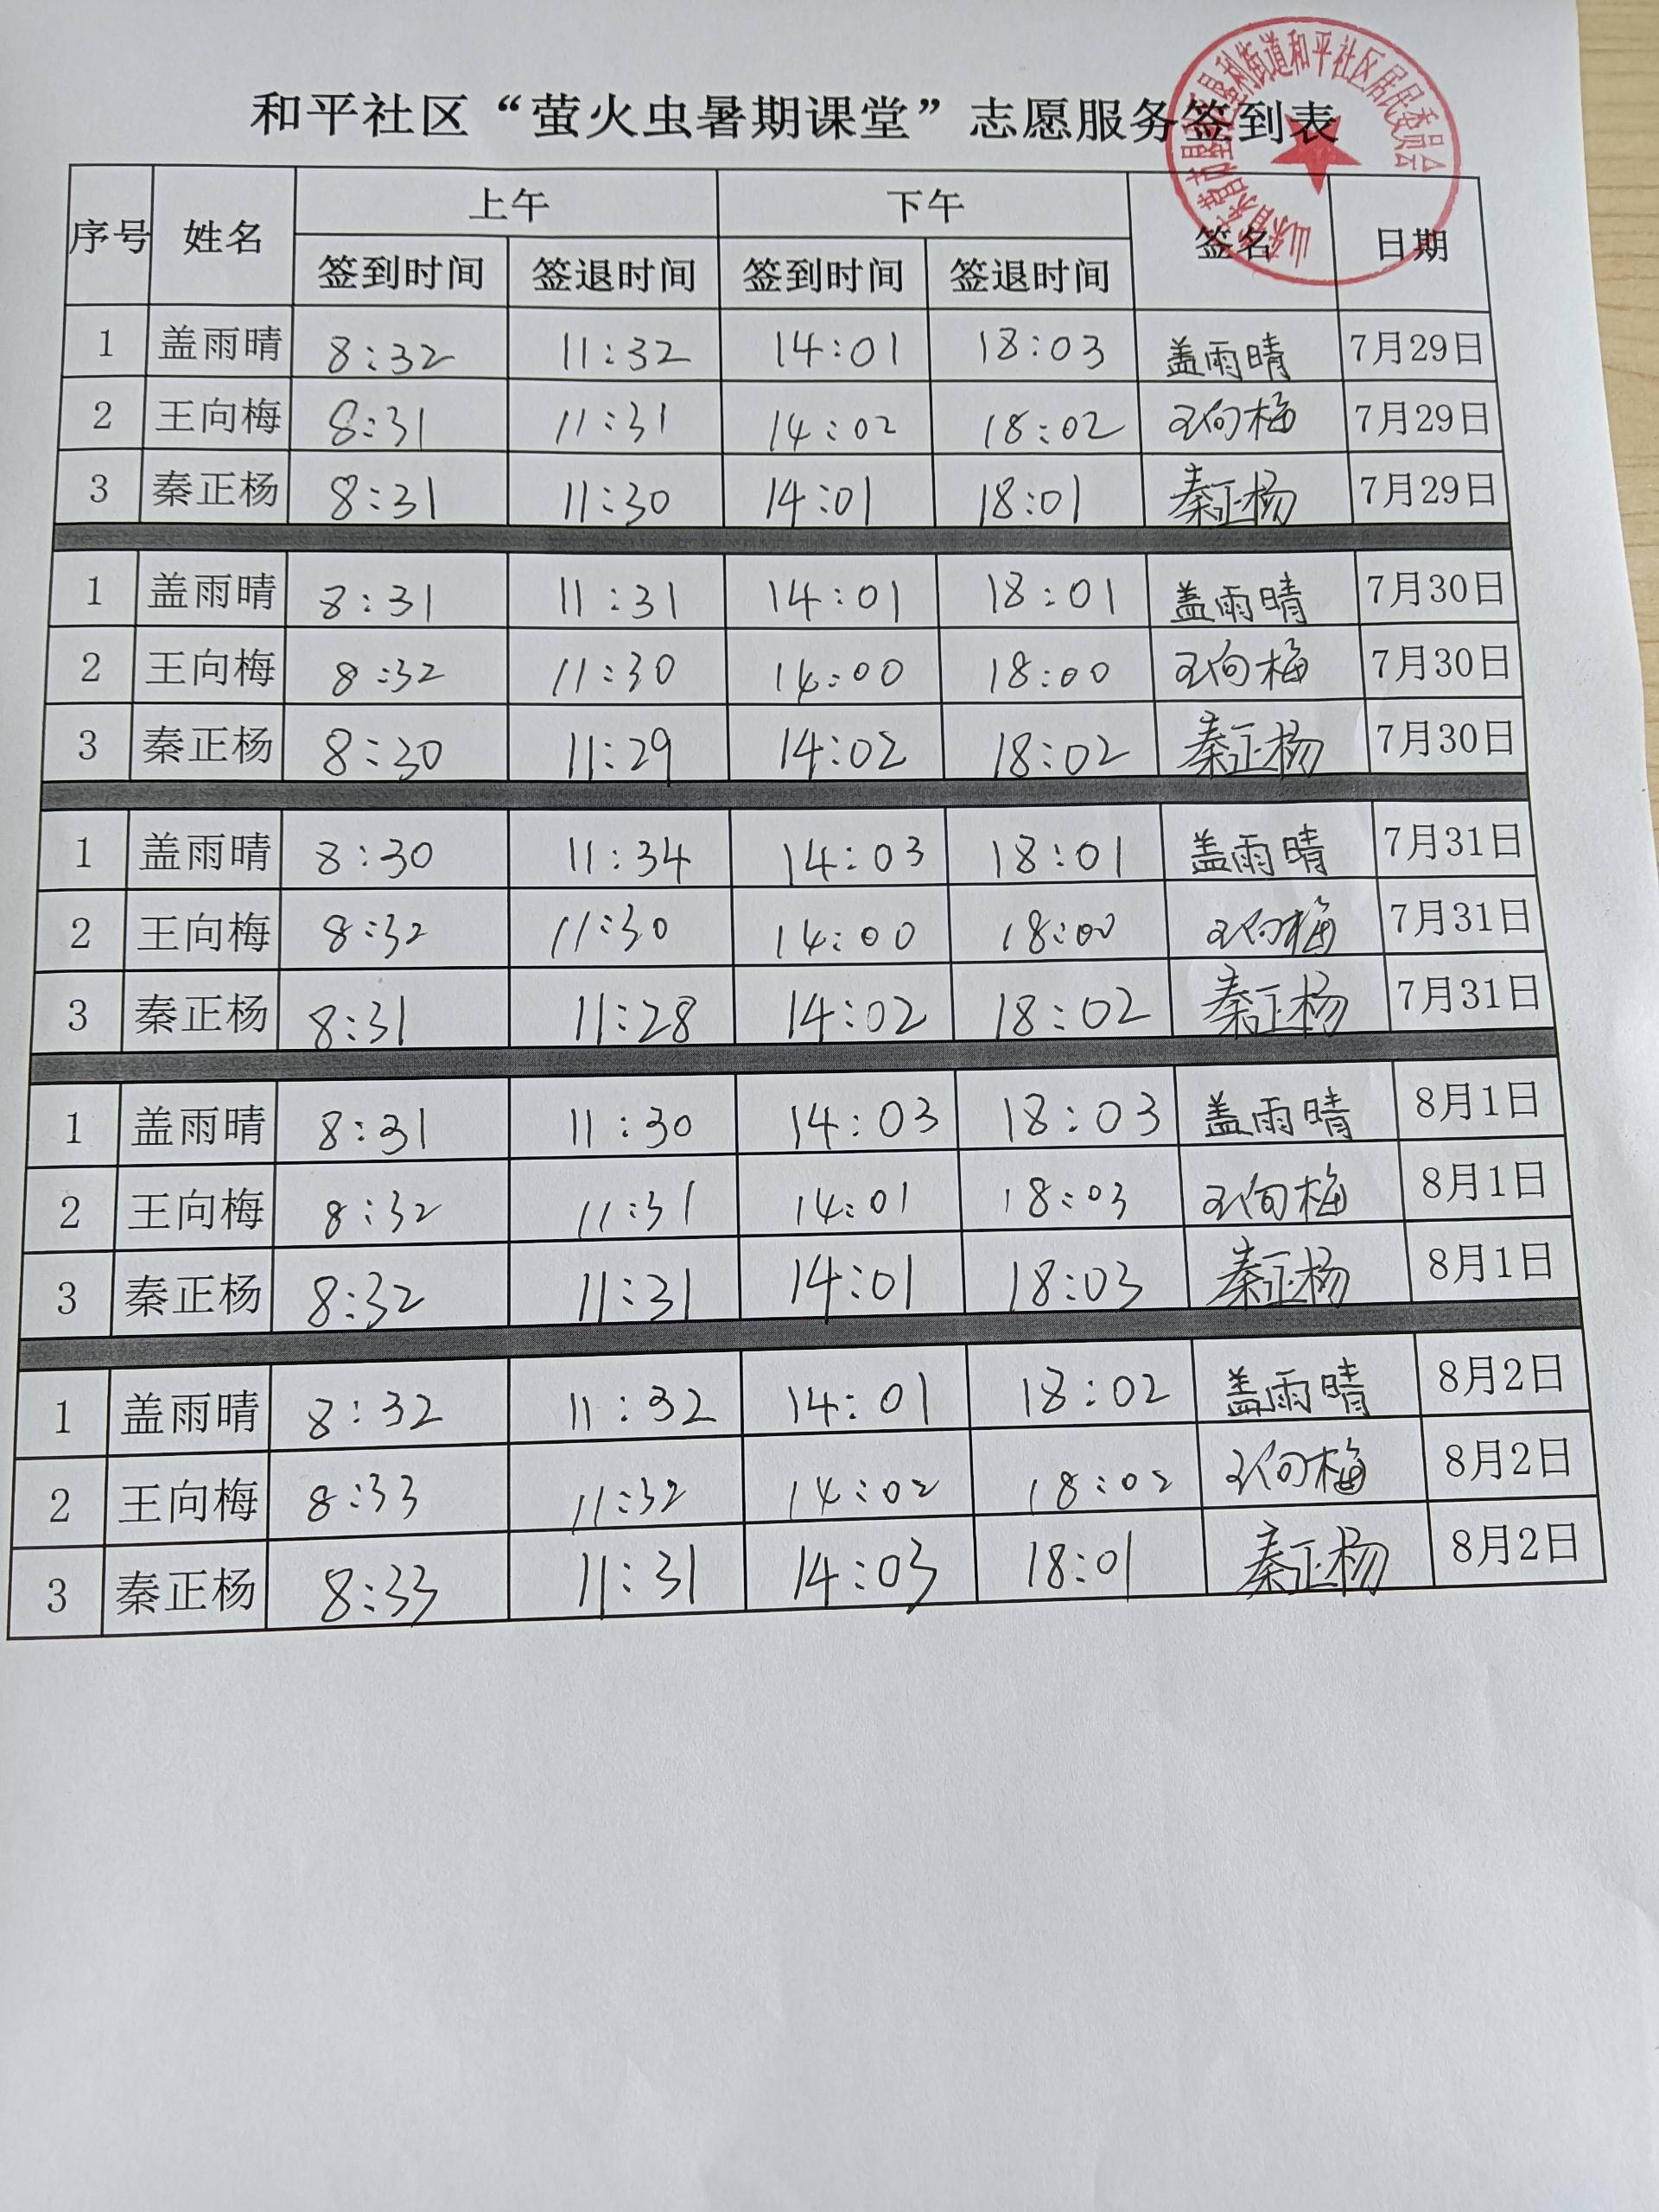 和平社区“萤火虫暑期课堂”志愿服务签到表
序号 姓名 上午 下午 签名 日期
签到时间 签退时间 签到时间 签退时间
1 盖雨晴 8:32 11:32 14:01 18:03 盖雨晴 7月29日
2 王向梅 8:31 11:31 14:02 18:02 王向梅 7月29日
3 秦正杨 8:31 11:30 14:01 18:01 秦正杨 7月29日
1 盖雨晴 8:31 11:31 14:01 18:01 盖雨晴 7月30日
2 王向梅 8:32 11:30 14:00 18:00 王向梅 7月30日
3 秦正杨 8:30 11:29 14:02 18:02 秦正杨 7月30日
1 盖雨晴 8:30 11:34 14:03 18:01 盖雨晴 7月31日
2 王向梅 8:32 11:30 14:00 18:00 王向梅 7月31日
3 秦正杨 8:31 11:28 14:02 18:02 秦正杨 7月31日
1 盖雨晴 8:31 11:30 14:03 18:03 盖雨晴 8月1日
2 王向梅 8:32 11:31 14:01 18:03 王向梅 8月1日
3 秦正杨 8:32 11:31 14:01 18:03 秦正杨 8月1日
1 盖雨晴 8:32 11:32 14:01 18:02 盖雨晴 8月2日
2 王向梅 8:33 11:32 14:02 18:02 王向梅 8月2日
3 秦正杨 8:33 11:31 14:03 18:01 秦正杨 8月2日
街道和平社区居民委员会